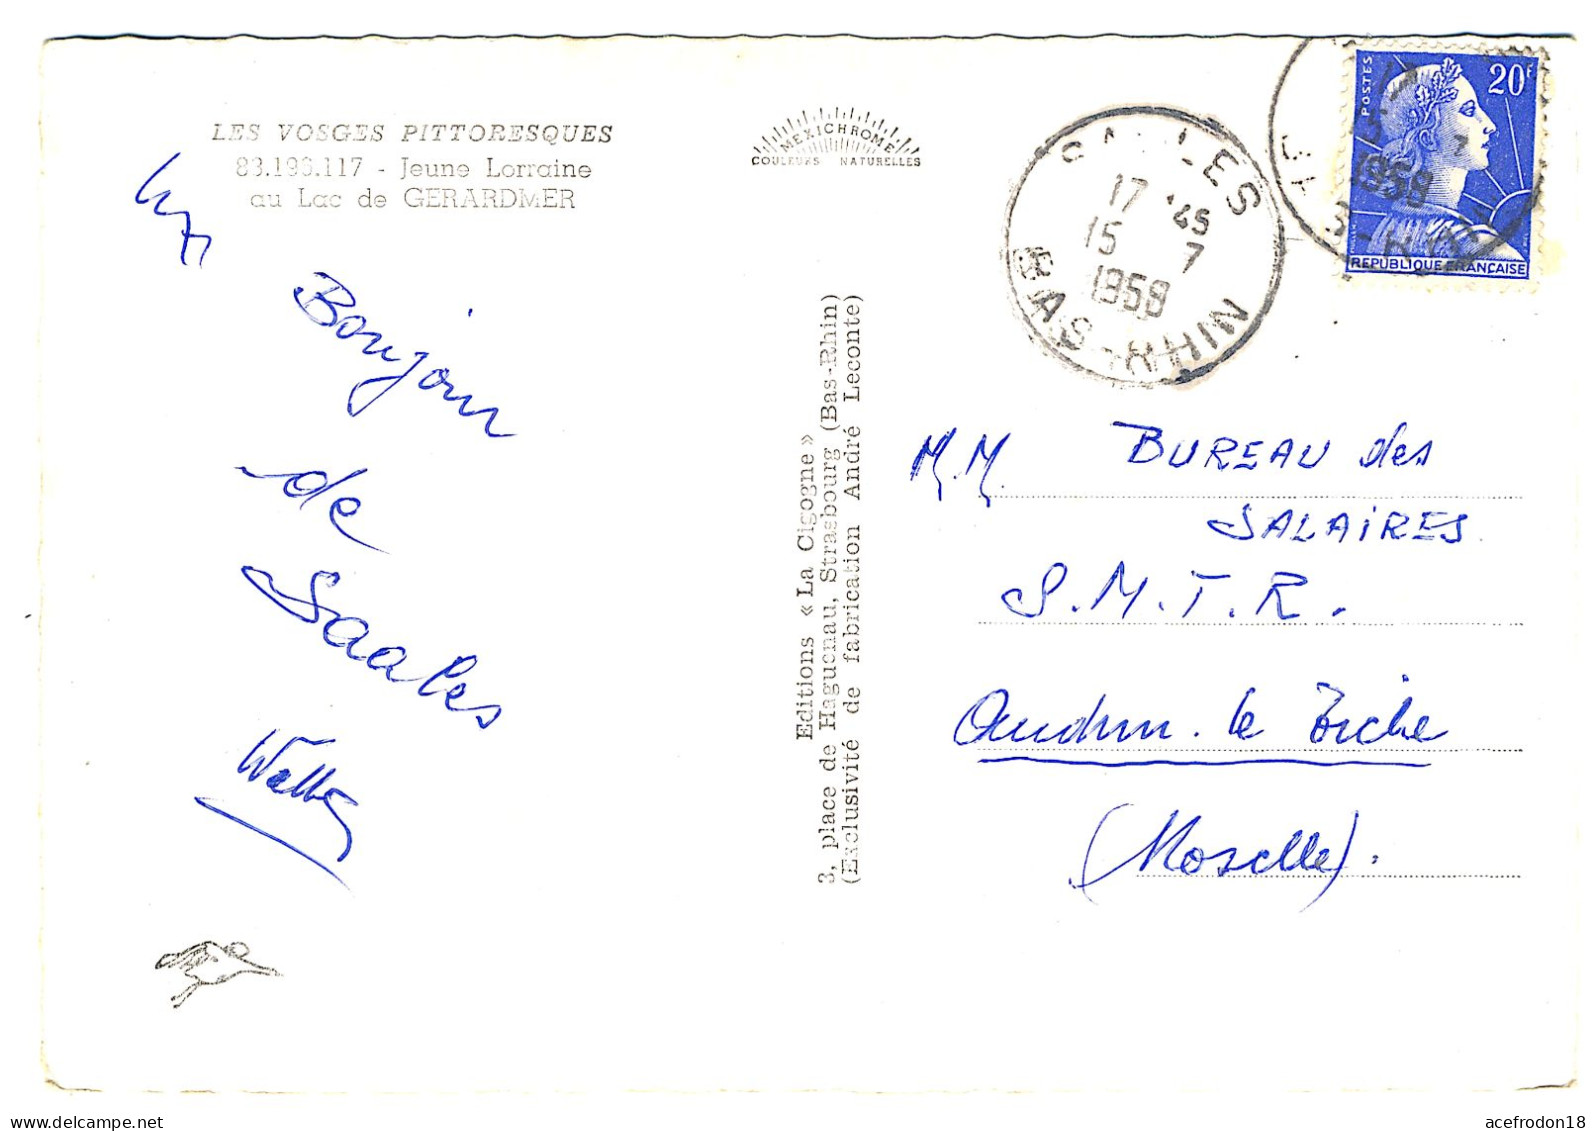 LES VOSGES PITTORESQUES
83.193.117 - Jeune Lorraine
au Lac de GERARDMER
Bonjour
de
Saales
Editions « La Cigogne »
3, place de Haguenau, Strasbourg (Bas-Rhin)
(Exclusivité de fabrication André Leconte)
MEXICHROME
COULEURS NATURELLES
SAALES
17 45
15 7
1959
BAS-RHIN
POSTES
20F
17
15 7
1959
REPUBLIQUE FRANÇAISE
M.M. BUREAU des
SALAIRES
S.M.T.R.
Audun. le Tiche
(Moselle).
acefrodon18